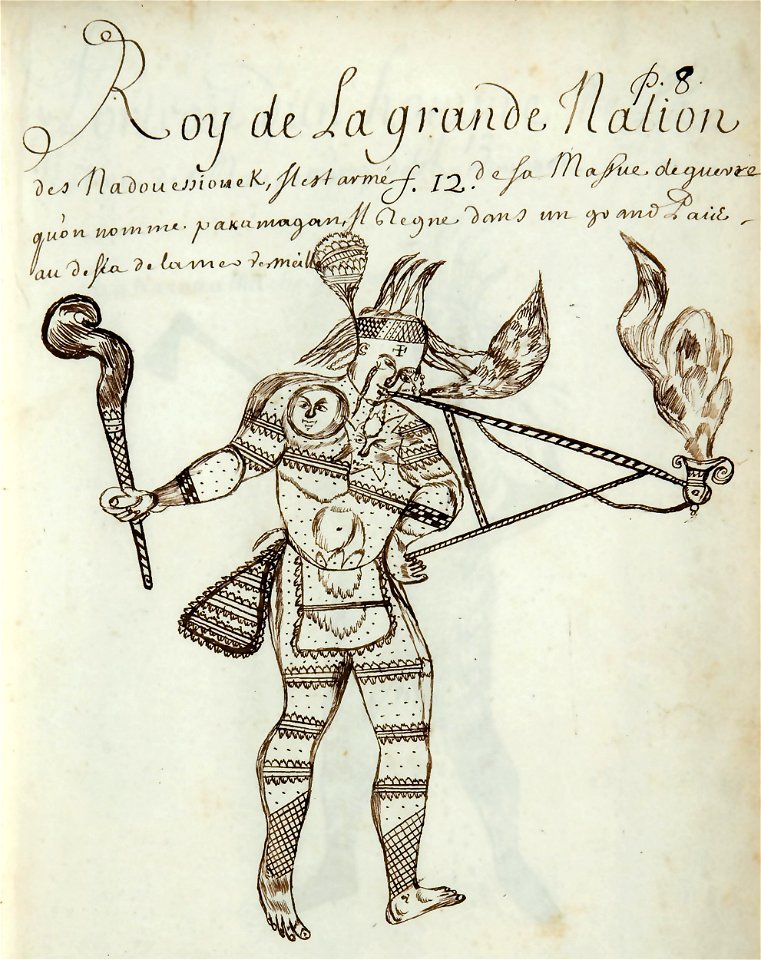 p. 8.
Roy de La grande Nation
des Nadouessiouek, Il est armé f. 12. de sa Massue de guerre
qu'on nomme pakamagan, Il Regne dans un grand Païs
au de sia de la mer vermeille